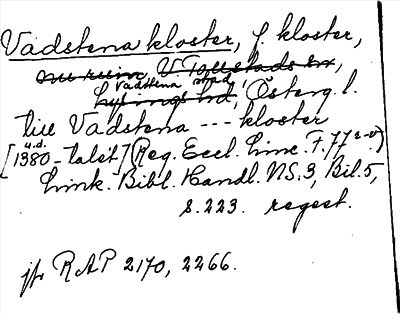 Vadstena kloster, f. kloster,
nu ruin, V. Tollstads sn,
Vadstena stad
Lysings hd, Österg. l.
till Vadstena --- kloster
u.d.
[1380-talet] (Reg. Eccl. Linc. F. 77 r-v)
Link. Bibl. Handl. NS. 3, Bil. 5,
s. 223. regest.
jfr RAP 2170, 2266.